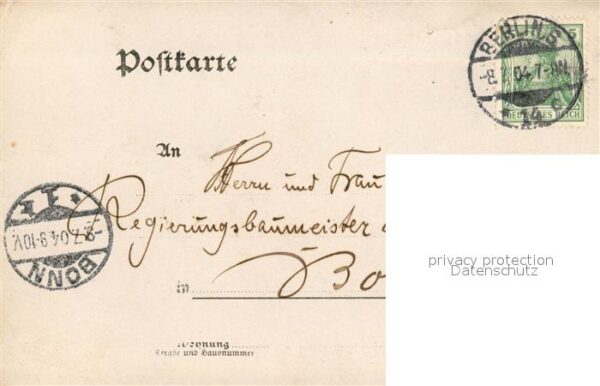 Postkarte
BERLIN S.
-8.7.04.7-8N.
* 14 c
5
DEUTSCHES REICH
An
Herrn und Frau
Regierungsbaumeister
in Bo
Wohnung
Straße und Hausnummer
* 1 *
-9.7.04.9-10V.
BONN
privacy protection
Datenschutz